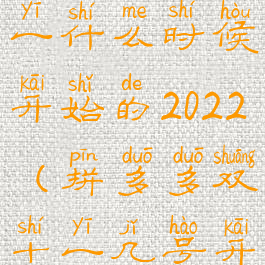 yī shí me shí hòu
一什么时候
kāi shǐ de
开始的2022
pīn duō duō shuāng
（拼多多双
shí yī jǐ hào kāi
十一几号开